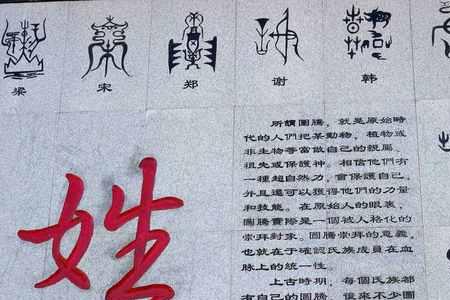 梁 宋 郑 谢 韩
姓
所謂圖騰，就是原始時
代的人們把某動物，植物或
非生物等當做自己的親屬、
祖先或保護神。相信他們有
一種超自然力，會保護自己，
并且還可以獲得他們的力量
和技能。在原始人的眼裏，
圖騰實際是一個被人格化的
崇拜對象。圖騰崇拜的意義，
也就在于確認氏族成員在血
脉上的統一性。
上古時期，每個氏族都
有自己的圖騰，後來不少圖